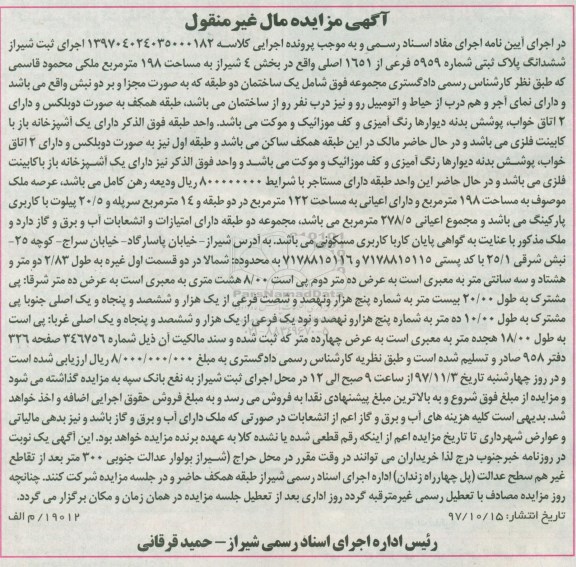 آگهی مزایده مال غیر منقول
در اجرای آیین نامه اجرای مفاد اسناد رسمی و به موجب پرونده اجرایی کلاسه ۱۳۹۷۰۴۰۲۴۰۳۵۰۰۰۱۸۲ اجرای ثبت شیراز
ششدانگ پلاک ثبتی شماره ۵۹۵۹ فرعی از ۱۶۵۱ اصلی واقع در بخش ۴ شیراز به مساحت ۱۹۸ مترمربع ملکی محمود قاسمی
که طبق نظر کارشناس رسمی دادگستری مجموعه فوق شامل یک ساختمان دو طبقه که به صورت مجزا و بر دو نبش واقع می باشد
و دارای نمای آجر و هم درب از حیاط و اتومبیل رو و نیز درب نفر رو از ساختمان می باشد، طبقه همکف به صورت دوبلکس و دارای
۲ اتاق خواب، پوشش بدنه دیوارها رنگ آمیزی و کف موزائیک و موکت می باشد. واحد طبقه فوق الذکر دارای یک آشپزخانه باز با
کابینت فلزی می باشد و در حال حاضر مالک در این طبقه همکف ساکن می باشد و طبقه اول نیز به صورت دوبلکس و دارای ۳ اتاق
خواب، پوشش بدنه دیوارها رنگ آمیزی و کف موزانیک و موکت می باشد و واحد فوق الذکر نیز دارای یک آشپزخانه باز باکابینت
فلزی می باشد و در حال حاضر این واحد طبقه دارای مستاجر با شرایط ۸۰۰۰۰۰۰۰۰ ریال ودیعه رهن کامل می باشد، عرصه ملک
موصوف به مساحت ۱۹۸ مترمربع و دارای اعیانی به مساحت ۱۲۲ مترمربع در دو طبقه و ۱۴ مترمربع سرپله و ۲۰/۵ پیلوت با کاربری
پارکینگ می باشد و مجموع اعیانی ۲۷۸/۵ مترمربع می باشد، مجموعه دو طبقه دارای امتیازات و انشعابات آب و برق و گاز دارد و
ملک مذکور با عنایت به گواهی پایان کاربا کاربری مسکونی می باشد. به آدرس شیراز- خیابان پاسارگاد- خیابان سراج- کوچه ۲۵-
نبش شرقی ۲۵/۱ با کد پستی ۷۱۷۸۸۱۵۱۱۵ و ۷۱۷۸۸۱۵۱۱۶ به محدوده: شمالا در دو قسمت اول غیره به طول ۲/۸۳ دو متر و
هشتاد و سه سانتی متر به معبری است به عرض ده متر دوم پی است ۸/۰۰ هشت متری به معبری است به عرض ده متر شرقا: پی
مشترک به طول ۲۰/۰۰ بیست متر به شماره پنج هزار ونهصد و شصت فرعی از یک هزار و ششصد و پنجاه و یک اصلی جنوبا پی
مشترک به طول ۱۰/۰۰ ده متر به شماره پنج هزارو نهصد و نود یک فرعی از یک هزار و ششصد و پنجاه و یک اصلی غربا: پی است
به طول ۱۸/۰۰ هجده متر به معبری است به عرض چهارده متر که ثبت شده و سند مالکیت آن ذیل شماره ۳۴۶۷۵۶ صفحه ۳۳۶
دفتر ۹۵۸ صادر و تسلیم شده است و طبق نظریه کارشناس رسمی دادگستری به مبلغ ۸/۰۰۰/۰۰۰/۰۰۰ ریال ارزیابی شده است
و در روز چهارشنبه تاریخ ۹۷/۱۱/۳ از ساعت ۹ صبح الی ۱۲ در محل اجرای ثبت شیراز به نفع بانک سپه به مزایده گذاشته می شود
و مزایده از مبلغ فوق شروع و به بالاترین مبلغ پیشنهادی نقدا به فروش می رسد و به مبلغ فروش حقوق اجرایی اضافه و اخذ خواهد
شد. بدیهی است کلیه هزینه های آب و برق و گاز اعم از انشعابات در صورتی که ملک دارای آب و برق و گاز باشد و نیز بدهی مالیاتی
و عوارض شهرداری تا تاریخ مزایده اعم از اینکه رقم قطعی شده یا نشده کلا به عهده برنده مزایده خواهد بود. این آگهی یک نوبت
در روزنامه خبرجنوب درج لذا خریداران می توانند در وقت مقرر در محل حراج (شیراز بولوار عدالت جنوبی ۳۰۰ متر بعد از تقاطع
غیر هم سطح عدالت (پل چهارراه زندان) اداره اجرای اسناد رسمی شیراز طبقه همکف حاضر و در جلسه مزایده شرکت کنند. چنانچه
روز مزایده مصادف با تعطیل رسمی غیرمترقبه گردد روز اداری بعد از تعطیل جلسه مزایده در همان زمان و مکان برگزار می گردد.
تاریخ انتشار: ۹۷/۱۰/۱۵ ۱۹۰۱۲/ م الف
رئیس اداره اجرای اسناد رسمی شیراز - حمید قرقانی